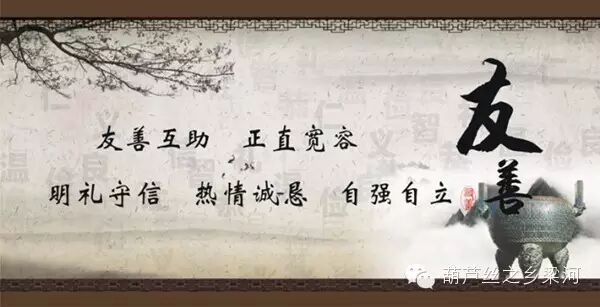 友善互助 正直宽容
明礼守信 热情诚恳 自强自立
友善
葫芦丝之乡梁河